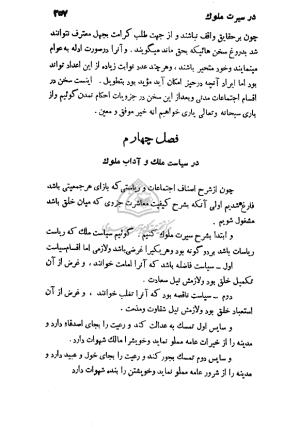 در سیرت ملوک
۳۵۷
چون برحقایق واقف نباشند و از جهت طلب کرامت بجهل معترف نتوانند
شد بدروغ سخن هائیکه بحق ماند میگویند . و آنرا درصورت اوله به عوام
مینمایند وخود متحیر باشند ، وهرچند عدو غوایت زیاده از این اعداد تواند
بود اما ایراد آنچه درحیز امکان آید مؤید بود بتطویل . اینست سخن در
اقسام اجتماعات مدنی وبعداز این سخن در جزویات احکام تمدن گوئیم واز
یاری سبحانه وتعالی یاری خواهیم انه خیر موفق و معین .
فصل چهارم
در سیاست ملک و آداب ملوک
چون ازشرح اصناف اجتماعات و ریاستی که بازای هرجمعیتی باشد
فارغ شدیم اولی آنکه بشرح کیفیت معاشرت جزوی که میان خلق باشد
مشغول شویم .
و ابتدا بشرح سیرت ملوک کنیم و گوئیم سیاست ملک که ریاست
ریاسات باشد بر دو گونه بود وهریکیرا غرضی باشد ولازمی اما اقسام سیاست
اول ــ سیاست فاضله باشد که آنرا امامت خوانند ، و غرض از آن
تکمیل خلق بود ولازمش نیل سعادت .
دوم ــ سیاست ناقصه بود که آنرا تغلب خوانند ، و غرض از آن
استعباد خلق بود ولازمش نیل شقاوت ومذمت .
و سایس اول تمسک به عدالت کند و رعیت را بجای اصدقاء دارد و
مدینه را از خیرات عامه مملو نماید وخویشرا مالک شهوات دارد .
و سایس دوم تمسک بجور کند و رعیت را بجای خول و عبید دارد و
مدینه را از شرور عامه مملو نماید وخویشتن را بنده شهوات دارد